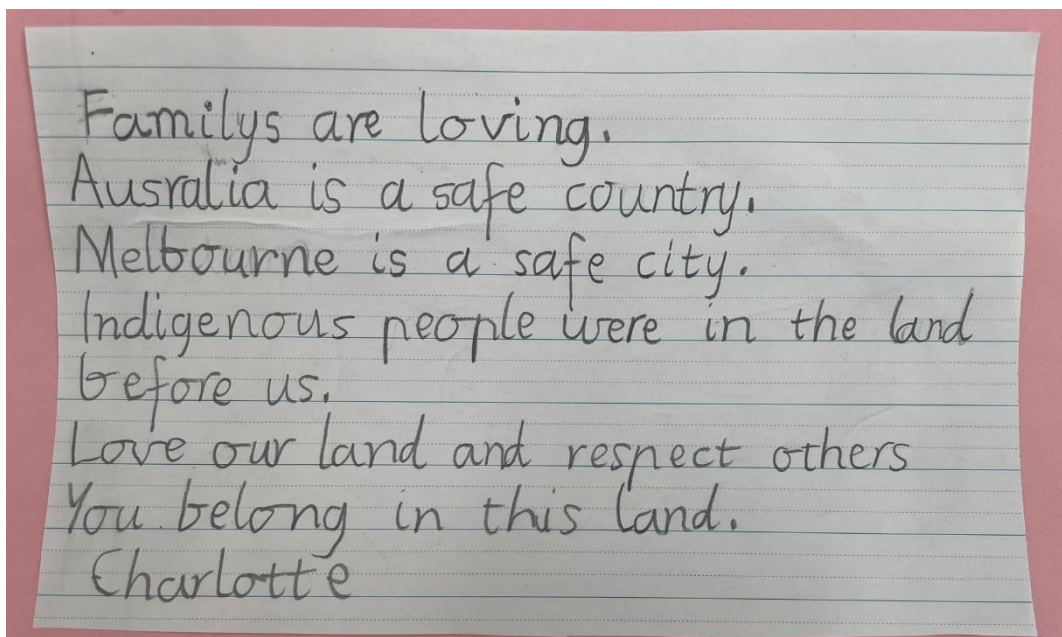 Familys are loving.
Ausralia is a safe country.
Melbourne is a safe city.
Indigenous people were in the land
before us.
Love our land and respect others
You belong in this land.
Charlotte